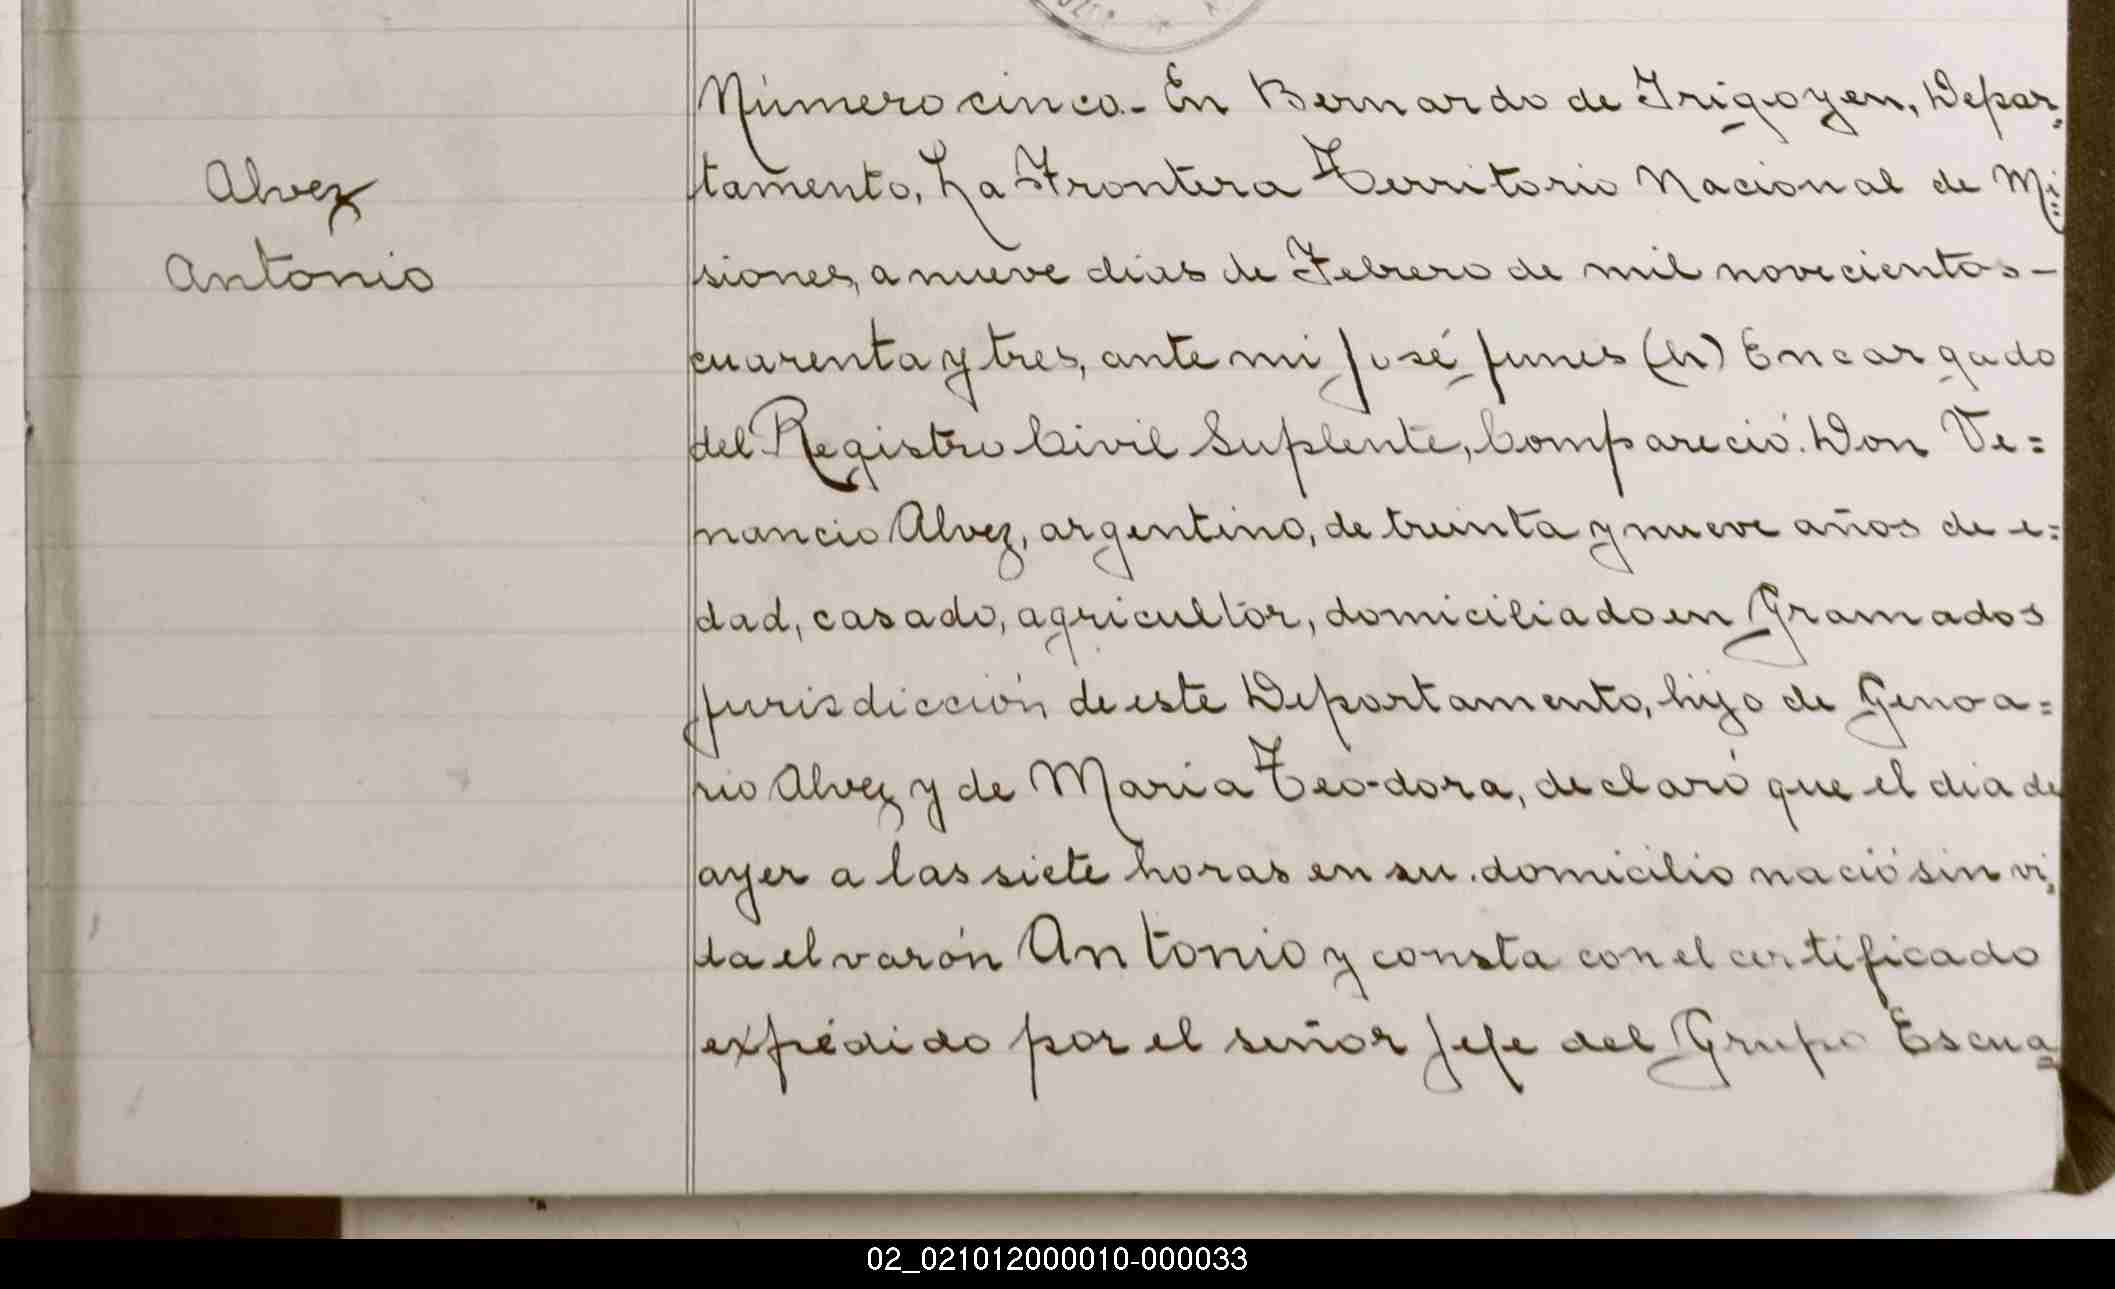 Alvez
Antonio
Número cinco.- En Bernardo de Irigoyen, Depar-
tamento, La Frontera Territorio Nacional de Mi=
siones, a nueve dias de Febrero de mil novecientos-
cuarenta y tres, ante mi José Funes (h) Encargado
del Registro Civil Suplente, Compareció. Don Ve=
nancio Alvez, argentino, de treinta y nueve años de e=
dad, casado, agricultor, domiciliado en Gramados
jurisdicción de este Departamento, hijo de Genoa=
rio Alvez y de Maria Teodora, declaró que el dia de
ayer a las siete horas en su domicilio nació sin vi-
da el varón Antonio y consta con el certificado
expedido por el señor Jefe del Grupo Escua=
02_021012000010-000033